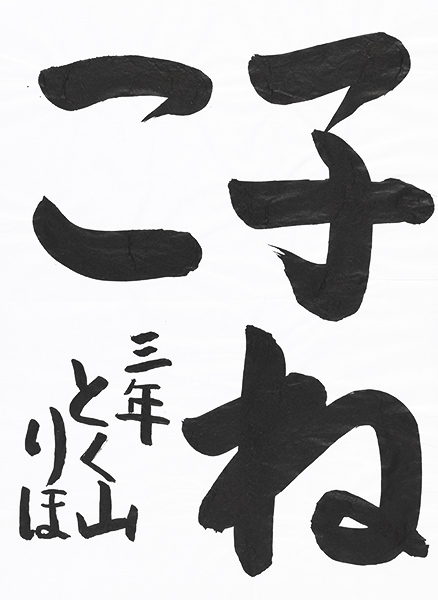 子ね
こ
三年
とく山
りほ